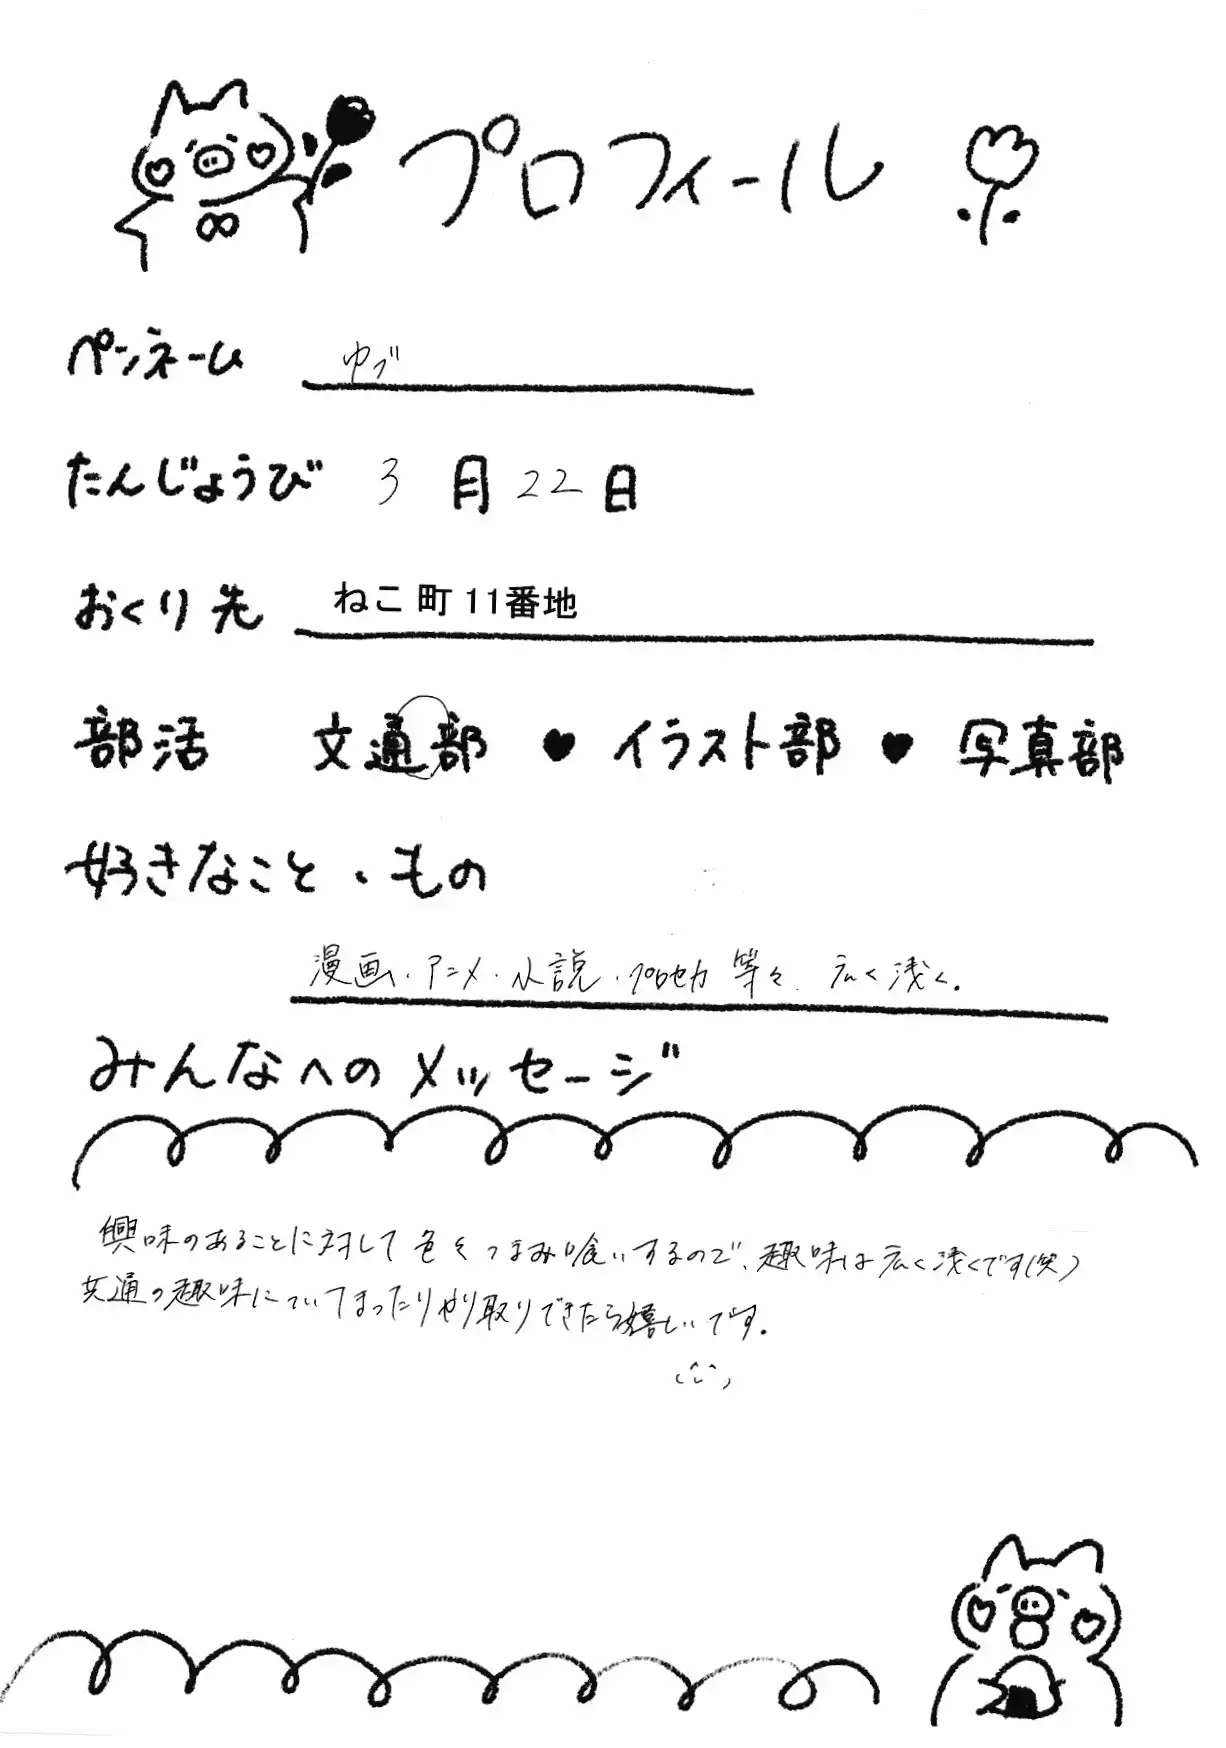 プロフィール
ペンネーム ゆづ
たんじょうび 3月22日
おくり先 ねこ町11番地
部活 文通部 ♥ イラスト部 ♥ 写真部
好きなこと・もの
漫画・アニメ・小説・プロセカ 等々. 広く浅く.
みんなへのメッセージ
興味のあることに対して色々つまみ喰いするので、趣味は広く浅くです(笑)
共通の趣味についてまったりやり取りできたら嬉しいです.